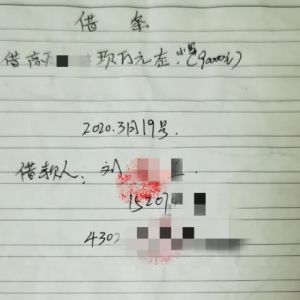 借条
借商 玖万元左.小写(90000元)
2020.3月19号.
借款人:刘
15207
4302